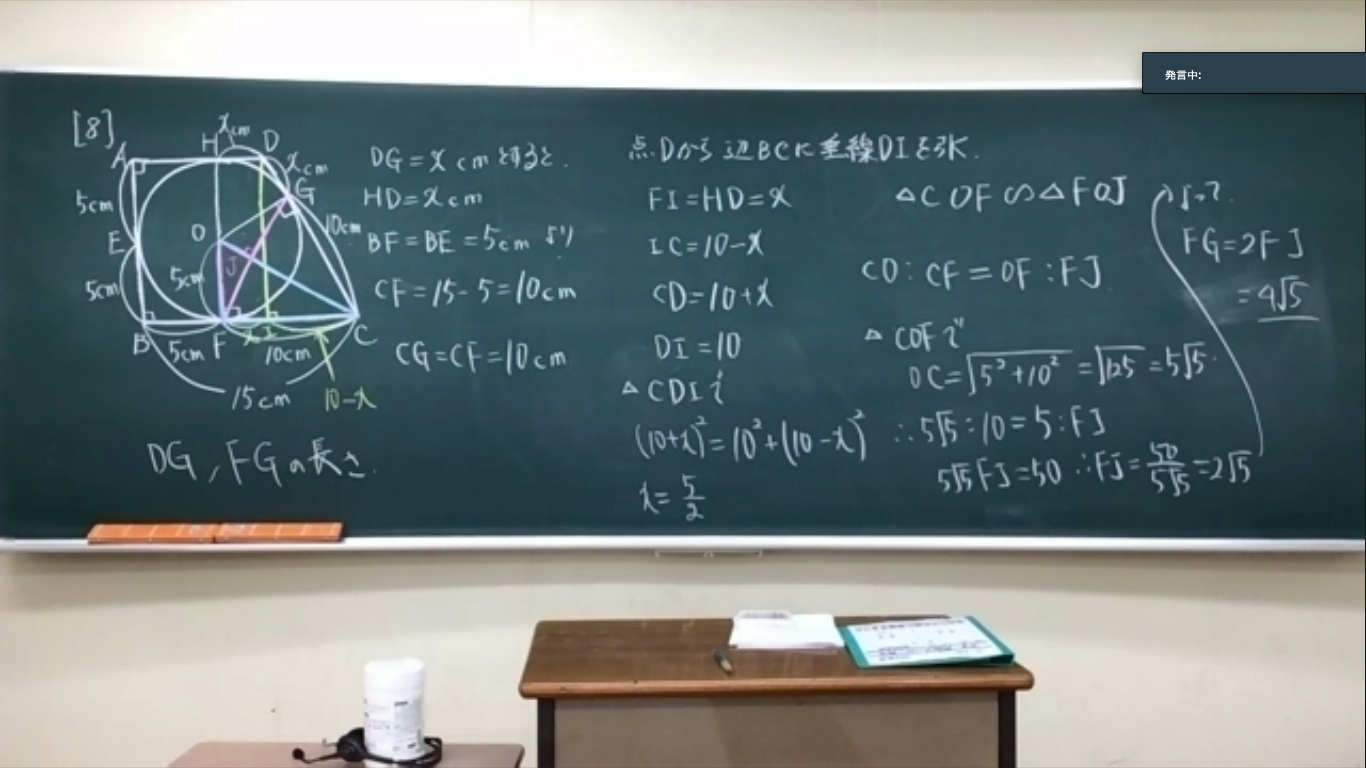 発言中:
[8]
A
H
xcm
D
xcm
G
5cm
E
5cm
O
J
5cm
10cm
B
5cm
F
x
I
10cm
C
15cm
10-x
DG, FGの長さ.
DG=xcmとすると.
HD=xcm
BF=BE=5cmより
CF=15-5=10cm
CG=CF=10cm
点Dから辺BCに垂線DIを引く.
FI=HD=x
IC=10-x
CD=10+x
DI=10
△CDIで
(10+x)²=10²+(10-x)²
x=5/2
△COF∽△FOJ
CO:CF=OF:FJ
△COFで
OC=√5²+10²=√125=5√5
∴5√5:10=5:FJ
5√5FJ=50 ∴FJ=50/5√5=2√5
よって.
FG=2FJ
=4√5